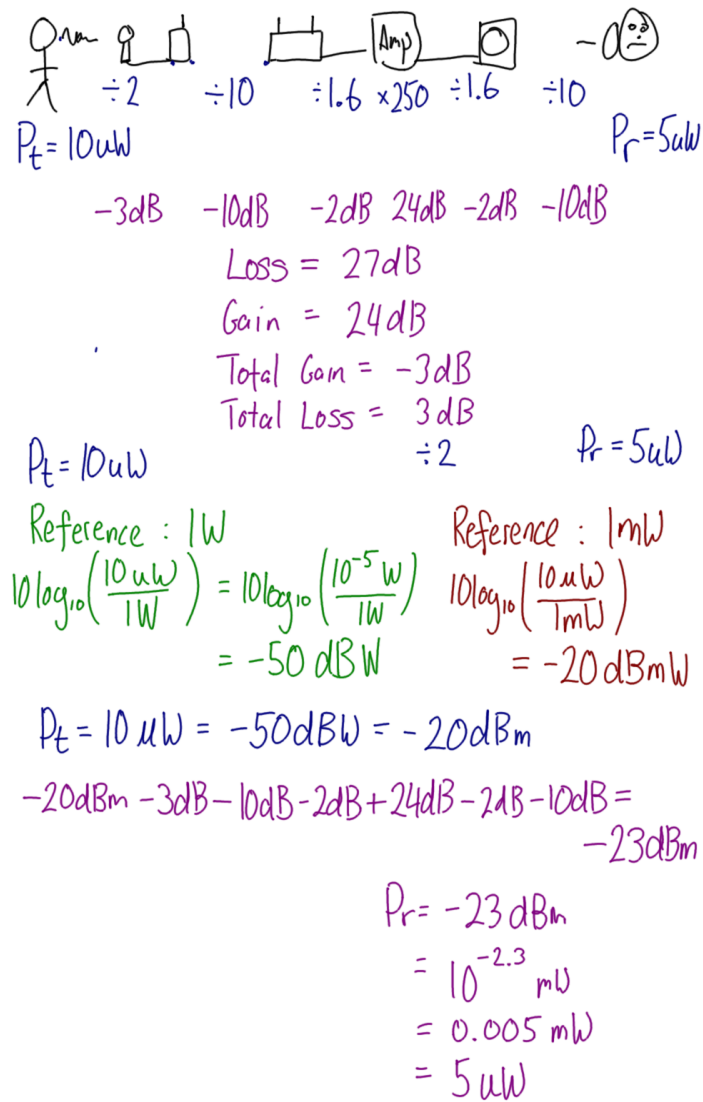 Amp
÷2 ÷10 ÷1.6 ×250 ÷1.6 ÷10
Pt = 10uW Pr = 5uW
-3dB -10dB -2dB 24dB -2dB -10dB
Loss = 27dB
Gain = 24dB
Total Gain = -3dB
Total Loss = 3dB
Pt = 10uW ÷2 Pr = 5uW
Reference : 1W
10log10(10uW/1W) = 10log10(10^-5 W/1W)
= -50 dBW
Reference : 1mW
10log10(10μW/1mW)
= -20dBmW
Pt = 10μW = -50dBW = -20dBm
-20dBm -3dB -10dB -2dB +24dB -2dB -10dB =
-23dBm
Pr = -23dBm
= 10^-2.3 mW
= 0.005 mW
= 5uW